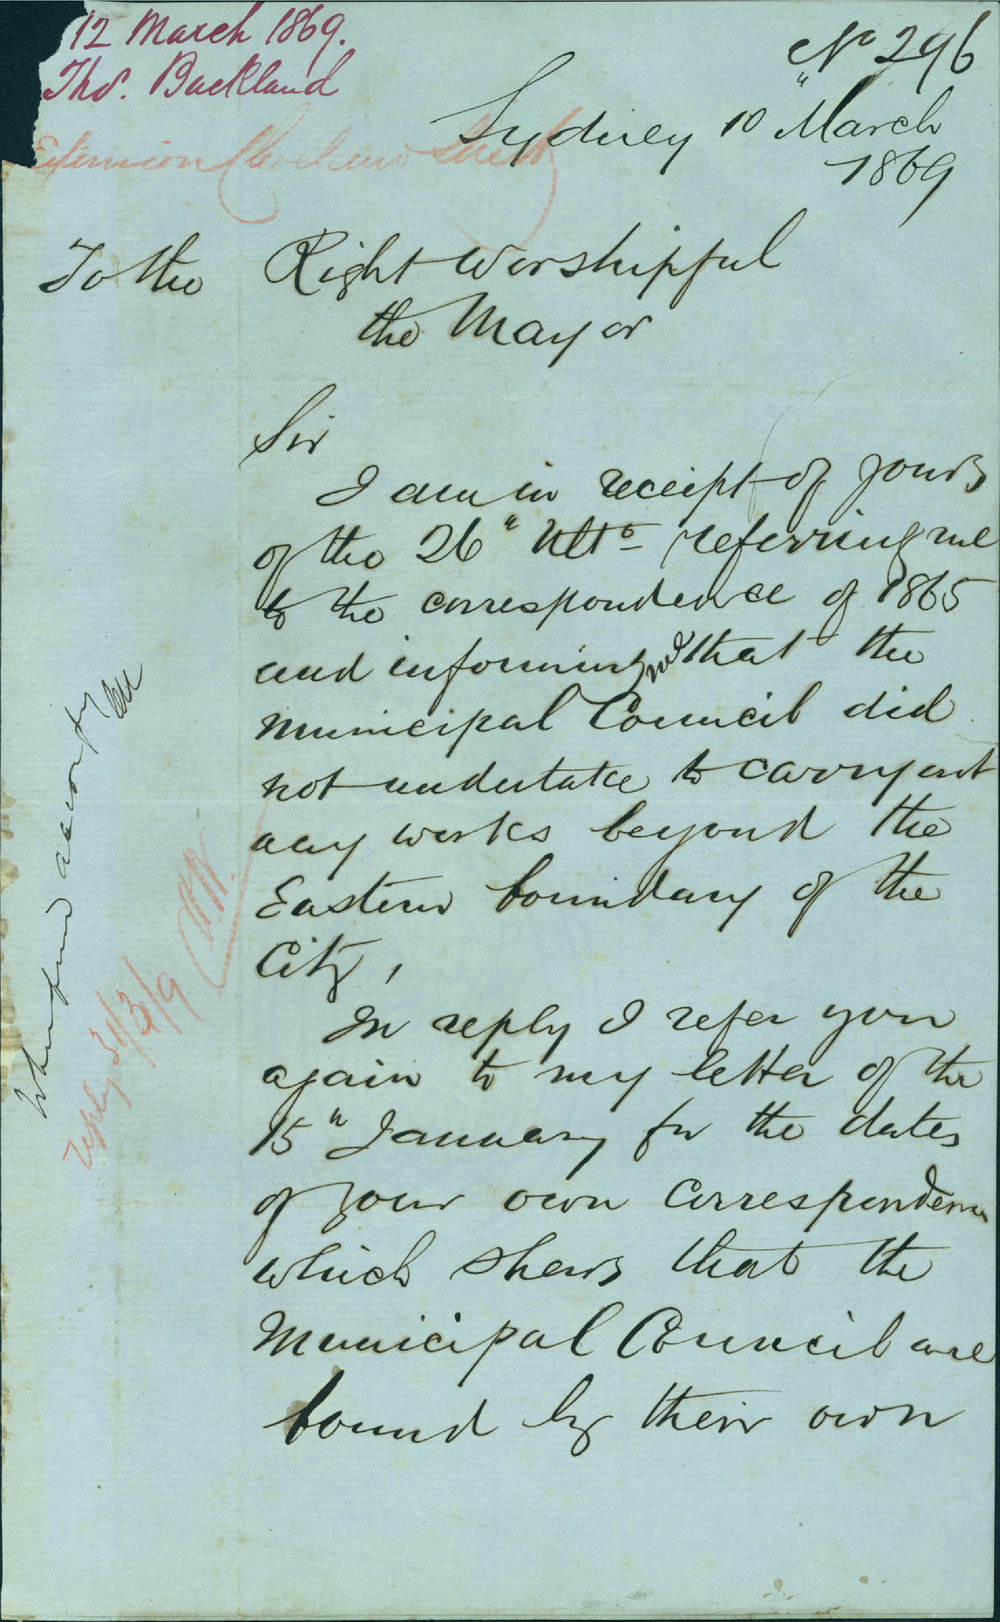 12 March 1869.
Thos. Buckland
No 296
Extension Cleveland Street
Sydney 10" March
1869
To the Right Worshipful
the Mayor
Sir
I am in receipt of yours
of the 26" Ulto referring me
to the correspondence of 1865
and informing me that the
Municipal Council did
not undertake to carry out
any works beyond the
Eastern boundary of the
City,
In reply I refer you
again to my letter of the
15" January for the dates
of your own correspondence
which shews that the
Municipal Council are
bound by their own
reply 31/3/9